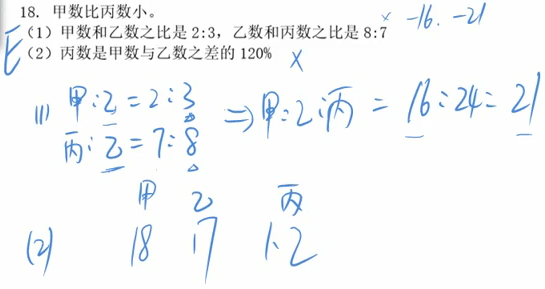 18. 甲数比丙数小。
× -16. -21
(1) 甲数和乙数之比是 2:3, 乙数和丙数之比是 8:7
E (2) 丙数是甲数与乙数之差的 120% ×
(1) 甲:乙=2:3
丙:乙=7:8
⇒甲:乙:丙 = 16:24:21
甲 乙 丙
(2) 18 17 1.2